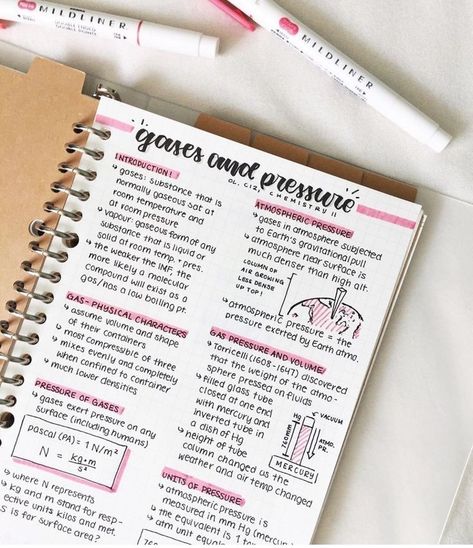 MILDLINER
MILDLINER
gases and pressure
OL. C12, CHEMISTRY 11
INTRODUCTION!
↳ gases: substance that is
normally gaseous sat at
room temperature and
at room pressure
↳ vapour: gaseous form of any
substance that is liquid or
solid at room temp. + pres.
↳ the weaker the IMF, the
more likely a molecular
compound will exist as a
gas/has a low boiling pt.
GAS- PHYSICAL CHARACTERS
↳ assume volume and shape
of their containers
↳ most compressible of three
↳ mixes evenly and completely
when confined to container
↳ much lower densities
PRESSURE OF GASES
↳ gases exert pressure on any
surface (including humans)
pascal (PA) = 1 N/m²
N = kg·m
s²
↳ where N represents
↳ kg and m stand for resp-
ective units kilos and met.
S is for surface area?
ATMOSPHERIC PRESSURE
↳ gases in atmosphere subjected
to Earth's gravitational pull
↳ atmosphere near surface is
much denser than high alt.
COLUMN OF
AIR GROWING
LESS DENSE
UP TOP!
↳ atmospheric pressure = the
pressure exerted by Earth atmo.
GAS PRESSURE AND VOLUME
↳ torricelli (1608-1647) discovered
that the weight of the atmo-
sphere pressed on fluids
↳ filled glass tube
closed at one end
with mercury and
inverted tube in
a dish of Hg
↳ height of tube
column changed as the
weather and air temp changed
VACUUM
760mm
ATMO.
PR.
MERCURY
UNITS OF PRESSURE
↳ atmospheric pressure is
measured in mm Hg (mercury
↳ the equivalent is 1 
760